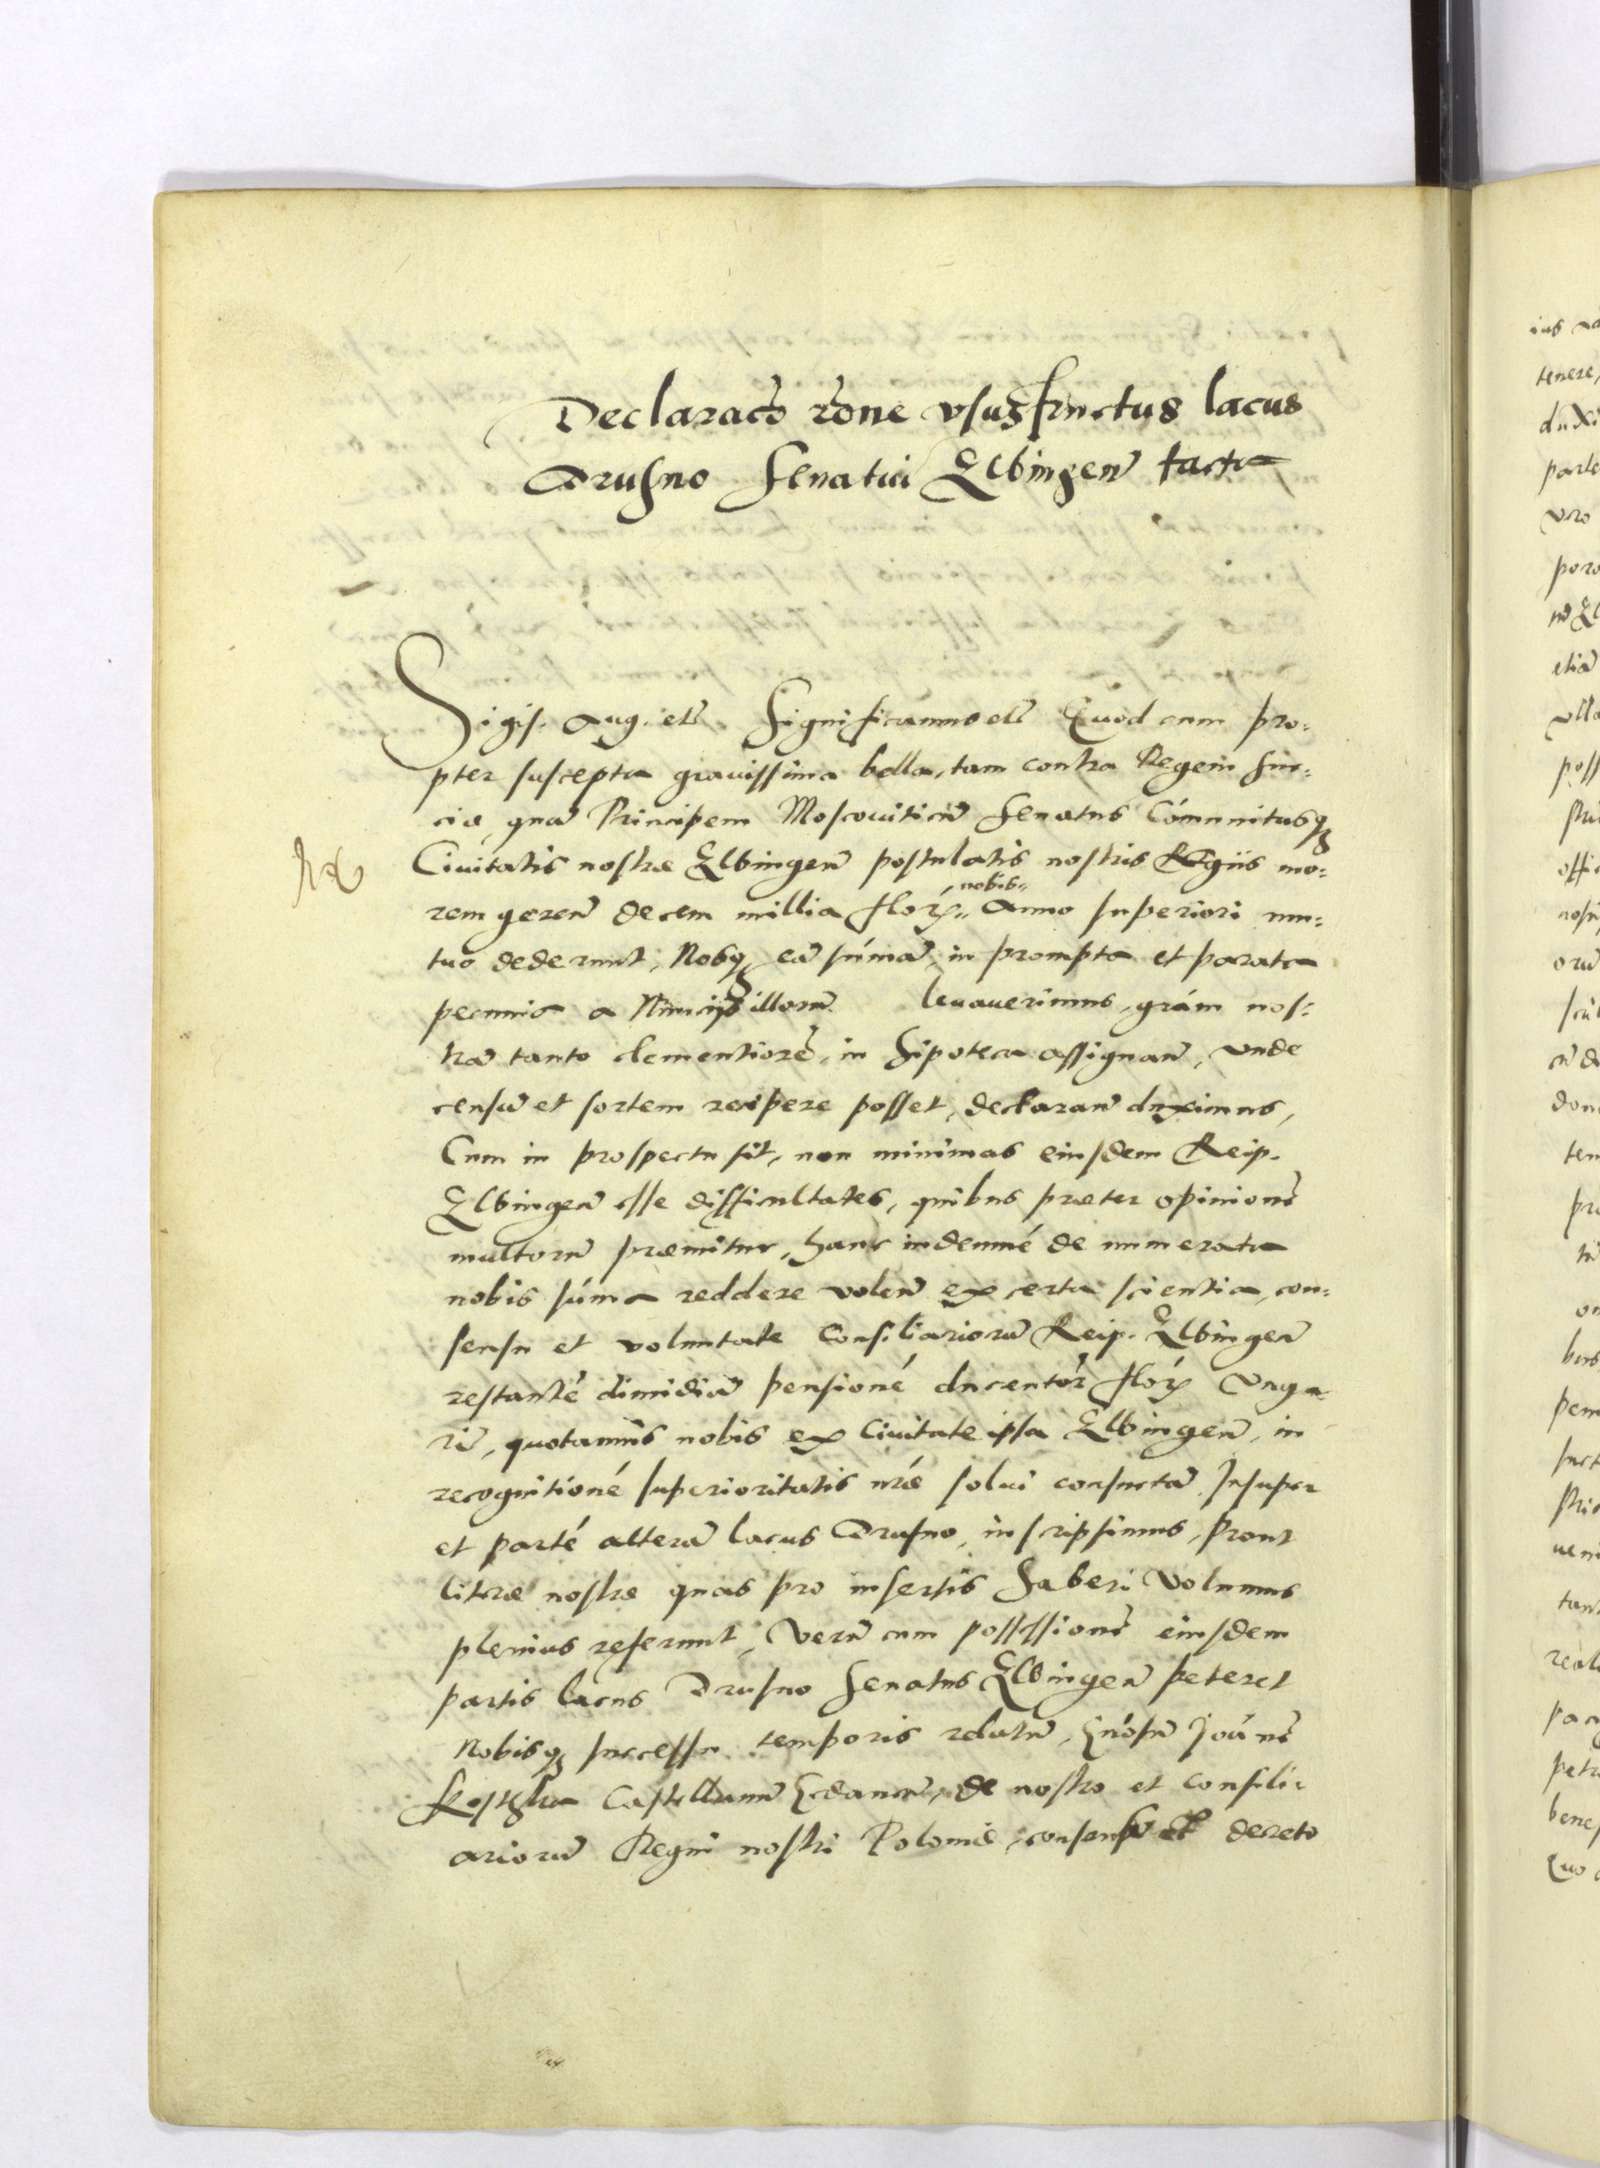 Declaracō rōne vsusfructus lacus
Drusno Senatui Elbingen̄ facta
Sigis. Aug. etc̄. Significamus etc̄ Quod cum pro:
pter suscepta grauissima bella, tam contra Regem Sue:
ciæ, quā Principem Moscouiticū Senatus Cōmunitasq
Ciuitatis nostræ Elbingen̄ postulatis nostris Regiis mo:
rem geren̄ decem millia flor̄. nobis Anno superiori mu:
tuo dederunt, Nosq eā sūmā, in prompta et parata
pecunia a Nuncijs illorū leuauerimus, grām nos:
trā tanto clementiorē, in hipoteca assignan̄, unde
censū et sortem recipere posset, declaran̄ duximus,
Cum in prospectu sit, non minimas eiusdem Reip.
Elbingen̄ esse difficultates, quibus præter opinionē
multorū præmitur, hanc indemnē de numerata
nobis sūma reddere volen̄ ex certa scientia, con:
sensu et voluntate Consiliariorū Reip. Elbingen̄
restantē dimidiā pensionē ducentor̄ flor̄ Vnga:
ri, quotannis nobis ex Ciuitate ipsa Elbingen̄, in
recognitionē superioritatis nr̄æ solui consuetā Insuper
et partē alterā lacus Drusno, inscripsimus, prout
literæ nostræ quas pro insertis haberi volumus
plenius referunt, Verū cum possessionē eiusdem
partis lacus Drusno Senatus Elbingen̄ peteret
Nobisq successu temporis relatū, Gn̄osū Joān̄ē
Kostka Castellanū Gedanen̄, de nostro et consili:
ariorū Regni nostri Poloniæ, consensu et decreto
ius
tenere,
duxi
parte
vero
poro
etiā
vlla
poss
offic
orū
don
tem
pro
pem
stri
tant
reali
petr
bene
Quo